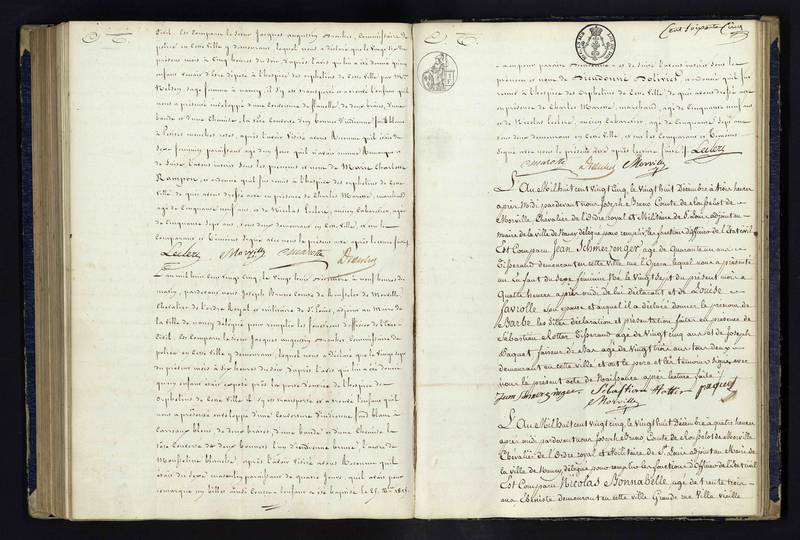 Civil. Est Comparu le Sieur Jacques augustin Drouher, Commissaire de
police en cette Ville y demeurant, lequel nous a déclaré que le Vingt six du
présent mois à Cinq heures du Soir d'après l'avis qui lui a été donné qu'un
Enfant venait d'être déposé à l'hospice des orphelins de cette Ville par Me
sage femme à nancy, il s'y est transporté a trouvé l'enfant qu'il
nous a présenté enveloppé d'une Couverture de flanelle, de deux braies, d'une
bande et d'une Chemise, la tête Couverte d'un bonnet d'indienne fond blanc
à après l'avoir Visité avons Reconnu qu'il était du
Sexe féminin paraissant âgé d'un jour qu'il n'avait aucune Remarque
de Suite l'avons inscrit sous les prénoms et nom de Marie Charlotte
Rampon, et ordonné qu'il fut remis à l'hospice des orphelins de cette
Ville, de quoi avons dressé acte en présence de Charles Marotte, marchand,
âgé de Cinquante neuf ans, et de Nicolas Leclerc, ancien Cabaretier, âgé
de Cinquante Sept ans, tous deux demeurant en cette Ville, et ont les
Comparans et Témoins Signé avec nous le présent acte après lecture faite
Leclerc Morville Marotte
L'an mil huit cent vingt cinq, le vingt huit Décembre à neuf heures du
matin, pardevant nous Joseph Bruno Comte de Rouffelot de Morville,
Chevalier de l'ordre Royal et militaire de St Louis, adjoint au Maire de
la Ville de nancy délégué pour remplir les fonctions d'officier de l'Etat
Civil. Est Comparu le Sieur Jacques augustin Commissaire de
police en cette Ville y demeurant, lequel nous a déclaré que le Vingt sept
du présent mois à Six heures du Soir d'après l'avis qui lui a été donné
qu'un enfant était exposé près la porte d'entrée de l'hospice des
orphelins de cette Ville il s'y est transporté et a trouvé l'enfant qu'il
nous a présenté enveloppé d'une Couverture d'indienne fond blanc à
Carreaux bleus, de deux braies d'une bande, et d'une Chemise la
tête Couverte de deux bonnets l'un d'indienne brune, l'autre de
Mousseline blanche, après l'avoir Visité avons Reconnu qu'il
était du Sexe masculin paraissant de quatre jours, qu'il avait pour
remarque un billet ainsi conçu
Cent soixante Cinq
et de Suite l'avons inscrit sous les
prénom et nom de Dieudonné Dolivier et ordonné qu'il fut
remis à l'hospice des Orphelins de cette Ville, de quoi avons dressé acte
en présence de Charles Marotte, marchand, âgé de Cinquante neuf ans
et de Nicolas Leclerc, ancien Cabaretier, âgé de Cinquante Sept ans
tous deux demeurant en cette Ville, et ont les Comparans et Témoins
Signé avec nous le présent après lecture faite. Leclerc
Marotte Morville
L'An Mil huit cent Vingt Cinq, le Vingt huit Décembre à trois heures
après Midi pardevant nous Joseph Bruno Comte de Rouffelot de
Morville, Chevalier de l'Ordre royal et Militaire de St Louis adjoint au
maire de la ville de Nancy délégué pour remplir les fonctions d'officier de l'Etat civil
Est Comparu Jean Schmerzonger âgé de Quarante un ans
Tisserand demeurant en cette Ville lequel nous a présenté
un Enfant du Sexe féminin Né le Vingt Sept du présent mois à
Quatre heures après midi de lui déclarant et de Louise
Favrolle son épouse et auquel il a déclaré donner le prénom de
Barbe les dites déclaration et présentation faites en présence de
Sébastien Tisserand âgé de Vingt Cinq ans et de Joseph
Paquet faiseur de Bas âgé de Vingt trois ans tous deux
demeurant en cette ville et ont le père et les témoins Signé avec
nous le présent acte de Naissance après lecture faite
Jean Schmerzinger Sébastien paquet
Morville
L'An Mil huit cent Vingt Cinq, le Vingt huit Décembre à quatre heures
après midi pardevant nous Joseph Bruno Comte de Rouffelot de Morville
Chevalier de l'Ordre royal et Militaire de St Louis adjoint au Maire de
la ville de Nancy délégué pour remplir les fonctions d'Officier de l'Etat civil
Est Comparu Nicolas Bonnabelle âgé de trente trois
ans Ebéniste demeurant en cette ville Grande rue Ville vieille